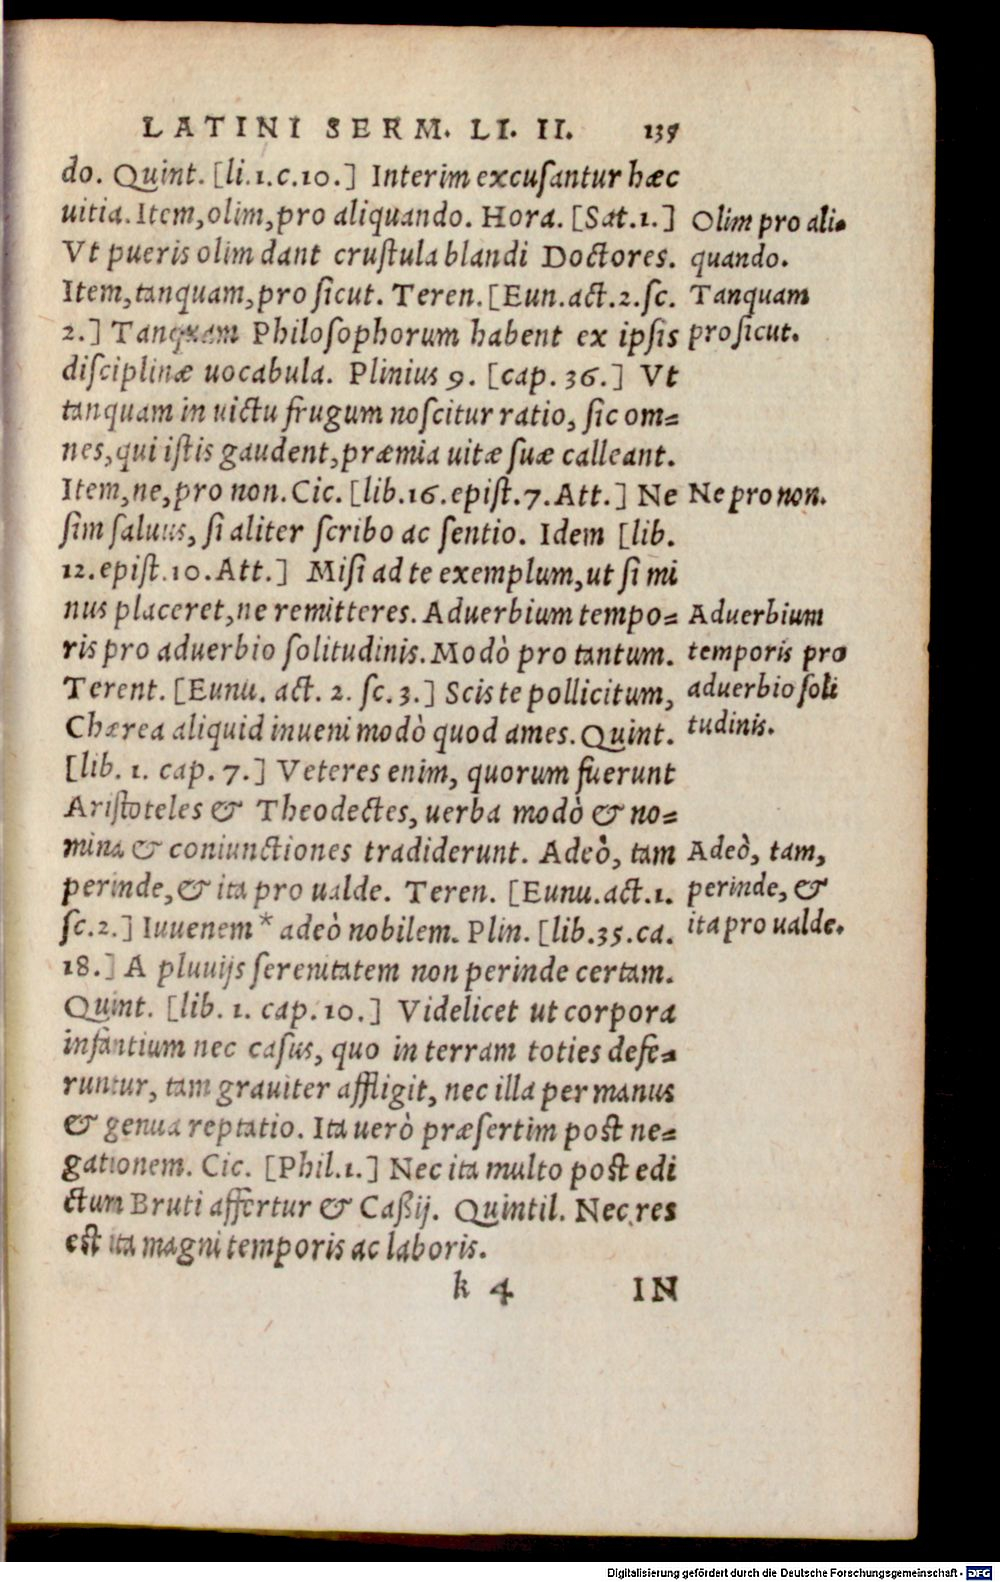 LATINI SERM. LI. II. 135
do. Quint. [li.1.c.10.] Interim excusantur hæc
uitia. Item, olim, pro aliquando. Hora. [Sat.1.]
Vt pueris olim dant crustula blandi Doctores.
Item, tanquam, pro sicut. Teren. [Eun.act.2.sc.
2.] Tanquam Philosophorum habent ex ipsis
disciplinæ uocabula. Plinius 9. [cap. 36.] Vt
tanquam in uictu frugum noscitur ratio, sic om=
nes, qui istis gaudent, præmia uitæ suæ calleant.
Item, ne, pro non. Cic. [lib.16.epist.7.Att.] Ne
sim saluus, si aliter scribo ac sentio. Idem [lib.
12.epist.10.Att.] Misi ad te exemplum, ut si mi
nus placeret, ne remitteres. Aduerbium tempo=
ris pro aduerbio solitudinis. Modò pro tantum.
Terent. [Eunu. act. 2. sc.3.] Scis te pollicitum,
Chærea aliquid inueni modò quod ames. Quint.
[lib. 1. cap. 7.] Veteres enim, quorum fuerunt
Aristoteles & Theodectes, uerba modò & no=
mina & coniunctiones tradiderunt. Adeò, tam
perinde, & ita pro ualde. Teren. [Eunu.act.1.
sc.2.] Iuuenem * adeò nobilem. Plin. [lib.35.ca.
18.] A pluuijs serenitatem non perinde certam.
Quint. [lib. 1. cap. 10.] Videlicet ut corpora
infantium nec casus, quo in terram toties defe=
runtur, tam grauiter affligit, nec illa per manus
& genua reptatio. Ita uerò præsertim post ne=
gationem. Cic. [Phil.1.] Nec ita multo post edi
ctum Bruti affertur & Caßij. Quintil. Nec res
est ita magni temporis ac laboris.
k 4 IN
Olim pro ali=
quando.
Tanquam
pro sicut.
Ne pro non.
Aduerbium
temporis pro
aduerbio soli
tudinis.
Adeò, tam,
perinde, &
ita pro ualde.
Digitalisierung gefördert durch die Deutsche Forschungsgemeinschaft - DFG